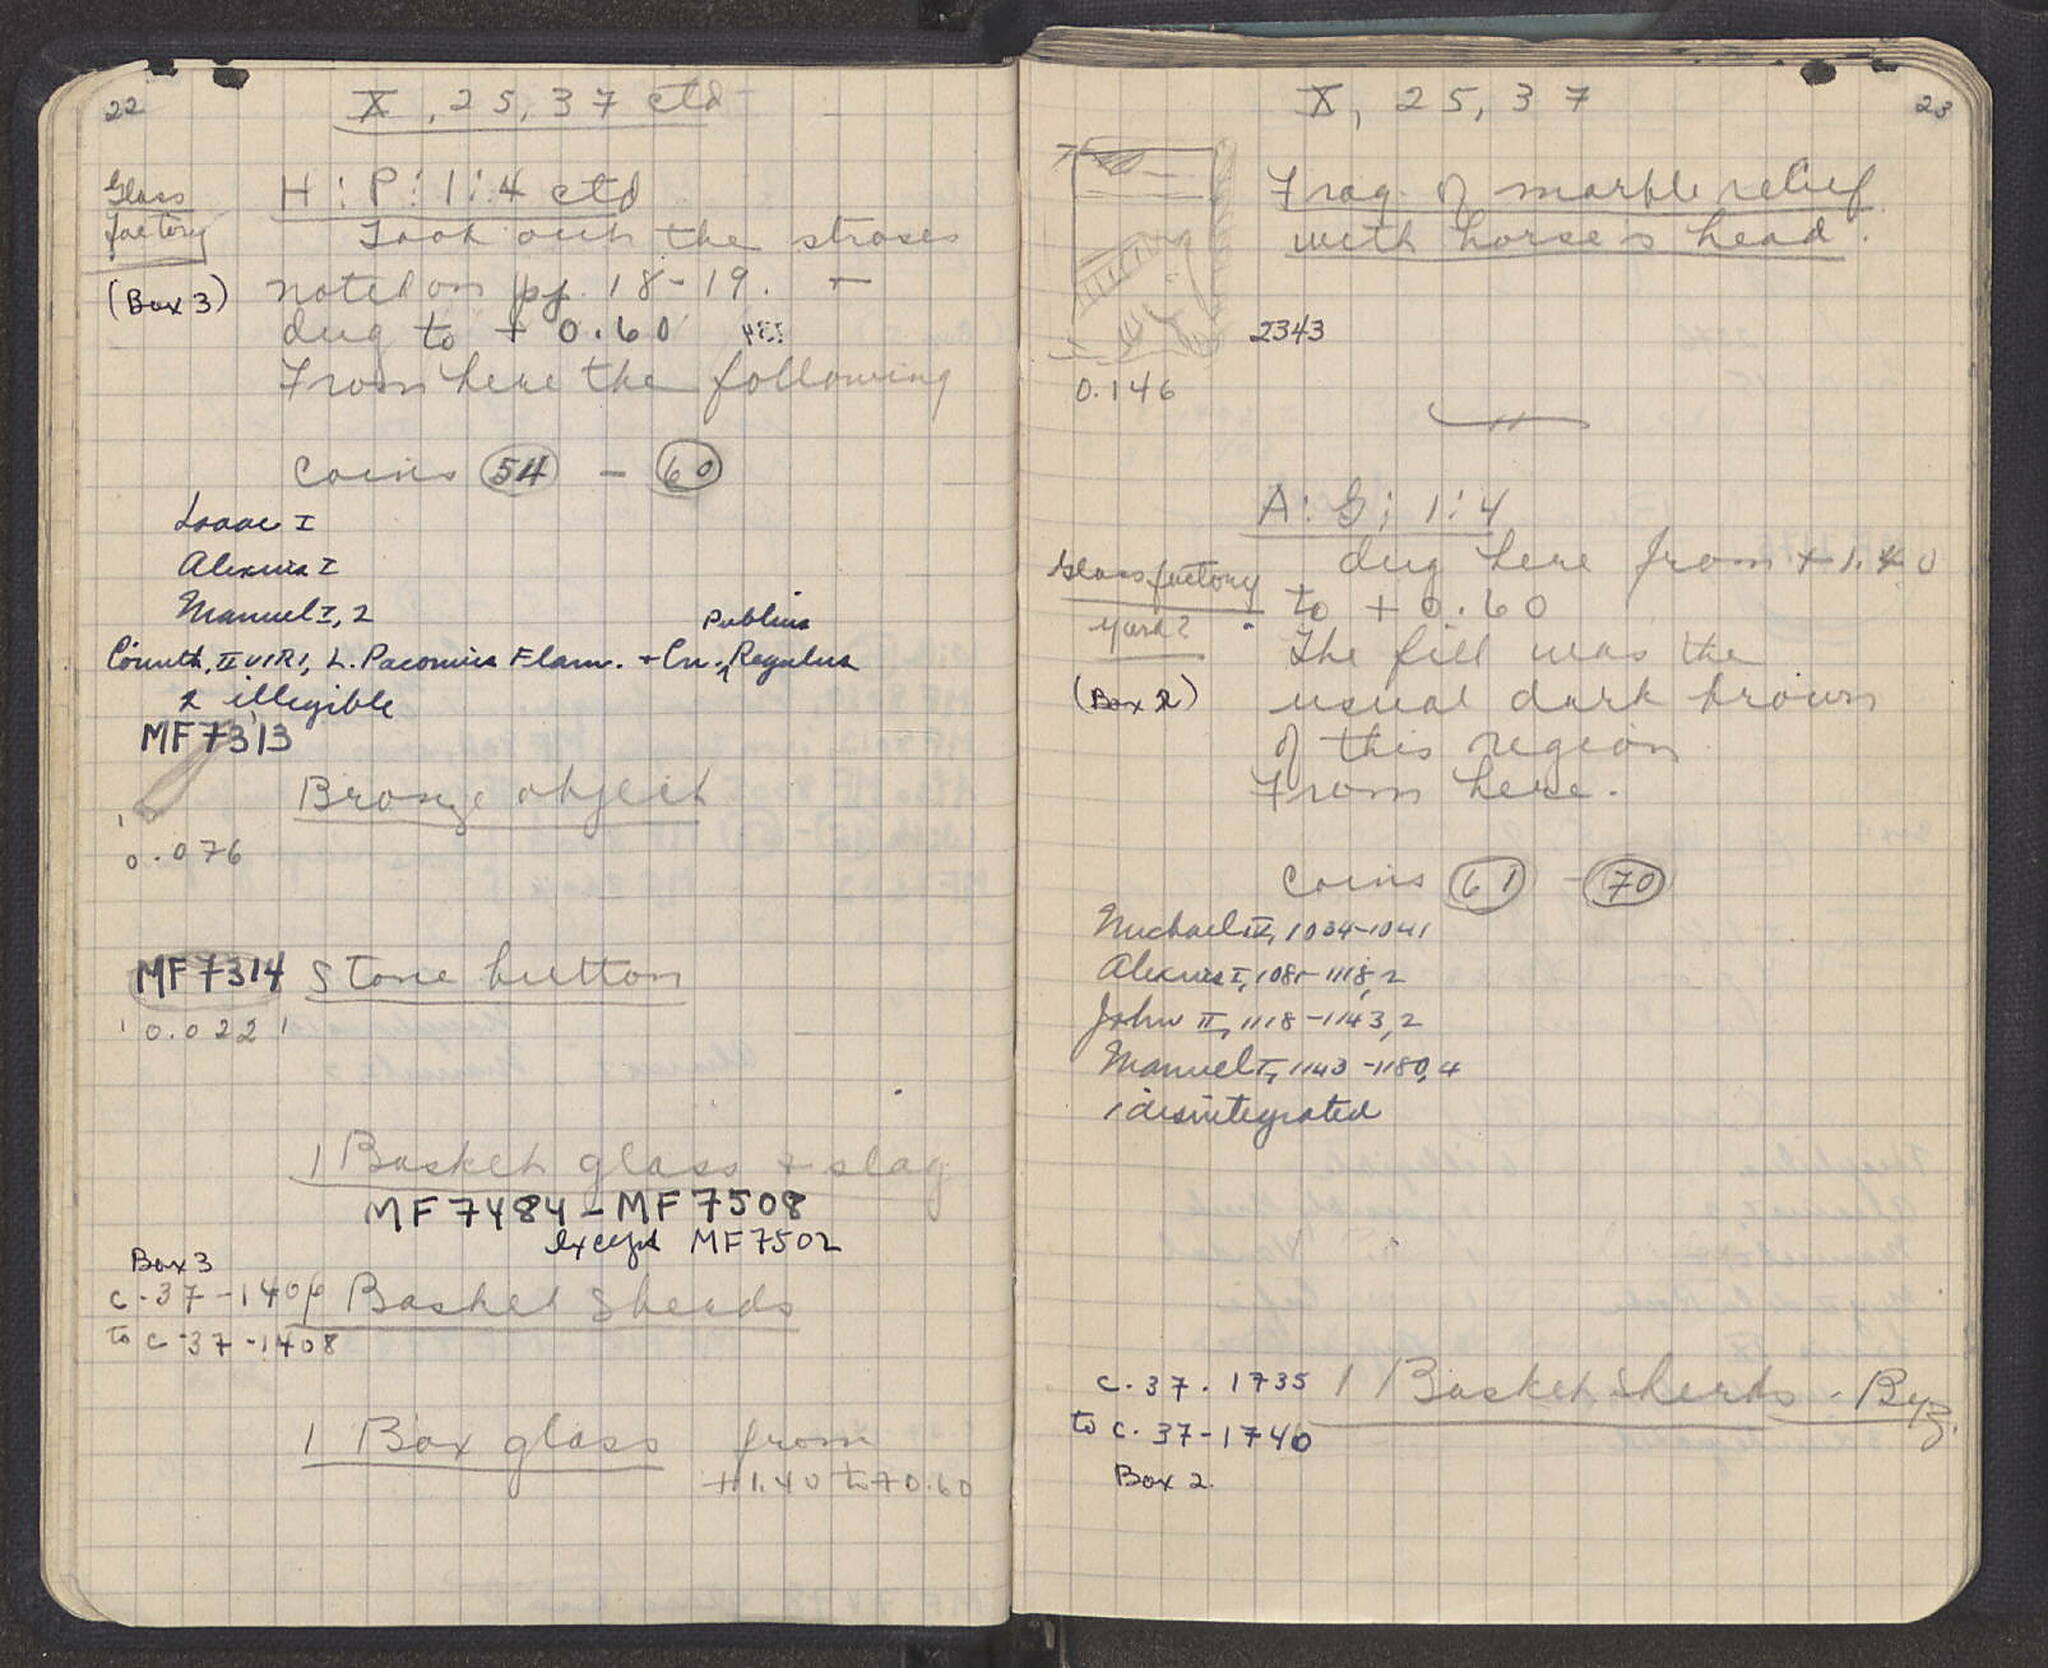 22
X, 25, 37 ctd
Glass
factory
(Box 3)
H : P : 1 : 4 ctd
Took out the stroses
noted on pp. 18-19. +
dug to + 0.60
From here the following
Coins 54 - 60
Isaac I
Alexius I
Manuel I, 2
Publius
Corinth, II VIRI, L. Paconius Flam. + Cn. Regulus
2 illegible
MF 7313
Bronze object
0.076
MF 7314 Stone button
0.022
1 Basket glass + slag
MF 7484 - MF 7508
except MF 7502
Box 3
C-37-1406 1 Basket Sherds
to C-37-1408
1 Box glass from
+1.40 to +0.60
X, 25, 37
23
Frag. of marble relief
with horse's head.
2343
0.146
A : G : 1 : 4
Glass factory
yard?
(Box 2)
dug here from +1.40
to +0.60
The fill was the
usual dark brown
of this region
From here.
Coins 61 - 70
Michael IV, 1034-1041
Alexius I, 1081-1118, 2
John II, 1118-1143, 2
Manuel I, 1143-1180, 4
1 disintegrated
C.37.1735 1 Basket Sherds - Byz.
to C.37-1740
Box 2.